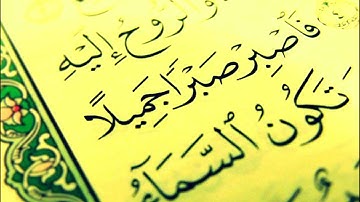 وَالرُّوحُ إِلَيْهِ
فَاصْبِرْ صَبْرًا جَمِيلًا
تَكُونُ السَّمَآءُ